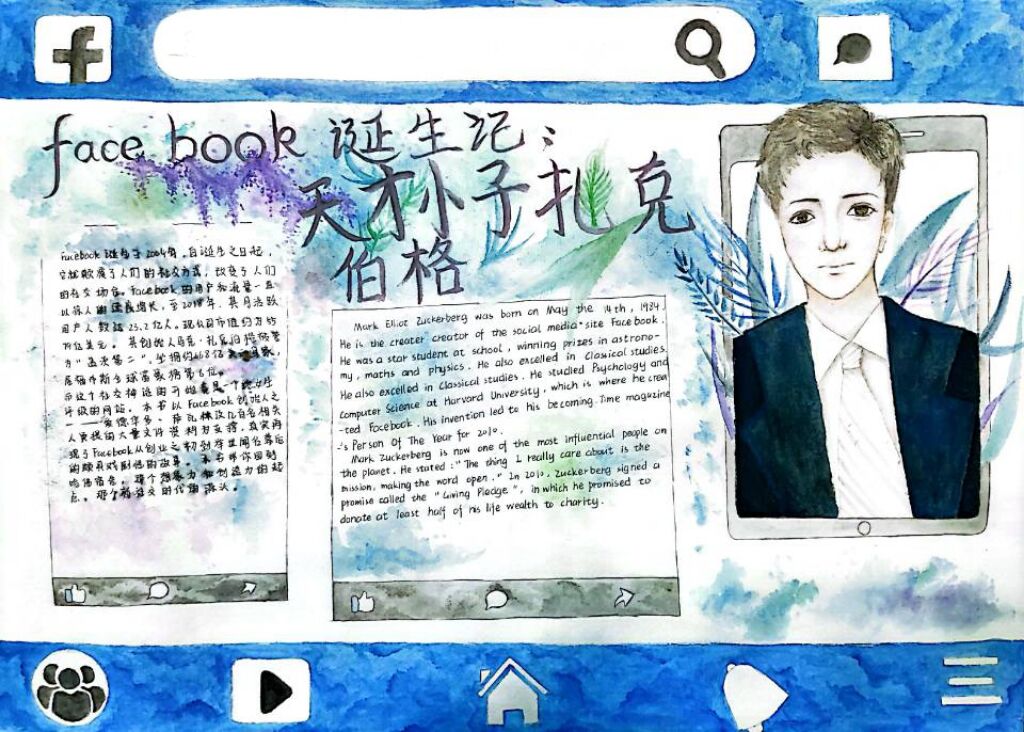 f
facebook 诞生记：
天才小子扎克
伯格
Facebook 诞生于2004年，自诞生之日起，
它就颠覆了人们的社交方式，改变了人们
的社交场合。Facebook的用户和流量一直
以惊人的速度增长，至2018年，其月活跃
用户人数达23.2亿人。现公司市值约为65
亿美元。其创始人马克·扎克伯格被誉
为"盖茨第二"，坐拥约668亿
居福布斯全球富豪榜第8位。
级的网站。本书以Facebook创始人之
人员提供的大量文件资料为支撑，真实再
现了Facebook从创业之初到举世闻名幕后
的颇具戏剧性的故事。本书带你回到
哈佛宿舍，那个想象力和创造力的起
点，那个
Mark Elliot Zuckerberg was born on May the 14th, 1984.
He is the creater creator of the social media site Facebook.
He was a star student at school, winning prizes in astrono-
my, maths and physics. He also excelled in Classical studies.
He also excelled in Classical studies. He studied Psychology and
Computer Science at Harvard University, which is where he crea
-ted Facebook. His invention led to his becoming Time magazine
's Person Of The Year for 2010.
Mark Zuckerberg is now one of the most influential people on
the planet. He stated: "The thing I really care about is the
mission, making the word open." In 2010, Zuckerberg signed a
promise called the "Giving Pledge", in which he promised to
donate at least half of his life wealth to charity.